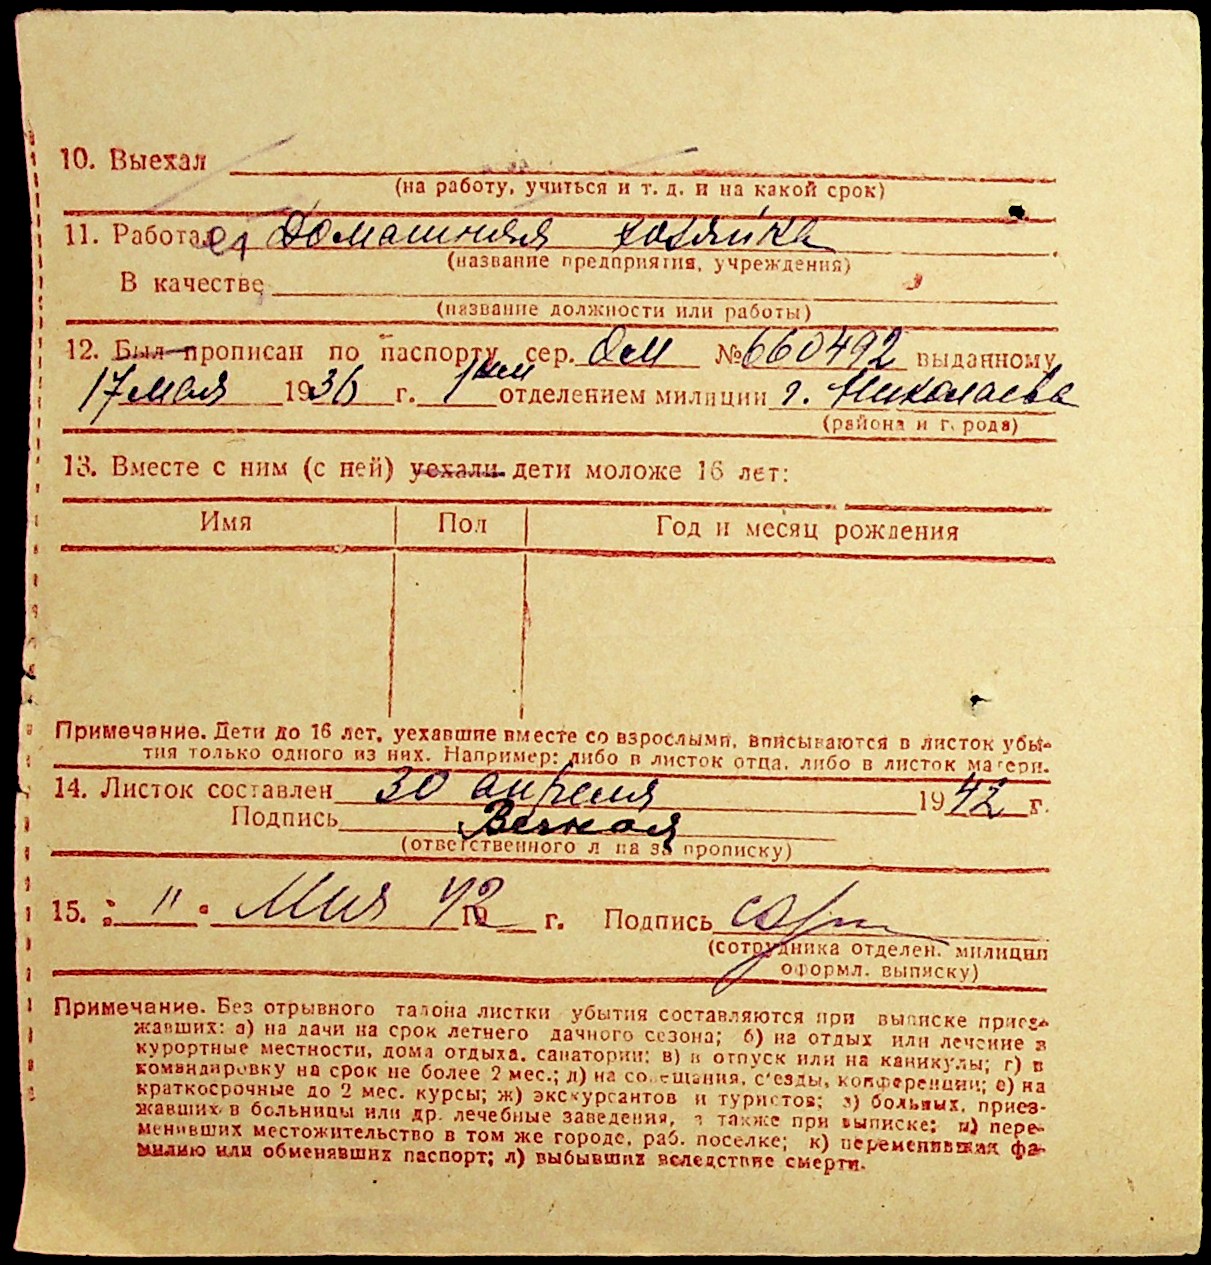 10. Выехал
(на работу, учиться и т. д. и на какой срок)
11. Работает Домашняя хозяйка
(название предприятия, учреждения)
В качестве
(название должности или работы)
12. Был прописан по паспорту сер. ОМ № 660492 выданному
17 мая 1936 г. 1ым отделением милиции г. Николаева
(района и города)
13. Вместе с ним (с ней) уехали дети моложе 16 лет:
Имя Пол Год и месяц рождения
Примечание. Дети до 16 лет, уехавшие вместе со взрослыми, вписываются в листок убы-
тия только одного из них. Например: либо в листок отца, либо в листок матери.
14. Листок составлен 30 апреля 1942 г.
Подпись
(ответственного лица за прописку)
15. " 11 " Мая 42 г. Подпись
(сотрудника отделен. милиции
оформл. выписку)
Примечание. Без отрывного талона листки убытия составляются при выписке приез-
жавших: а) на дачи на срок летнего дачного сезона; б) на отдых или лечение в
курортные местности, дома отдыха, санатории; в) в отпуск или на каникулы; г) в
командировку на срок не более 2 мес.; д) на совещания, с'езды, конференции; е) на
краткосрочные до 2 мес. курсы; ж) экскурсантов и туристов; з) больных, приез-
жавших в больницы или др. лечебные заведения, а также при выписке: и) пере-
менивших местожительство в том же городе, раб. поселке; к) переменивших фа-
милию или обменявших паспорт; л) выбывших вследствие смерти.